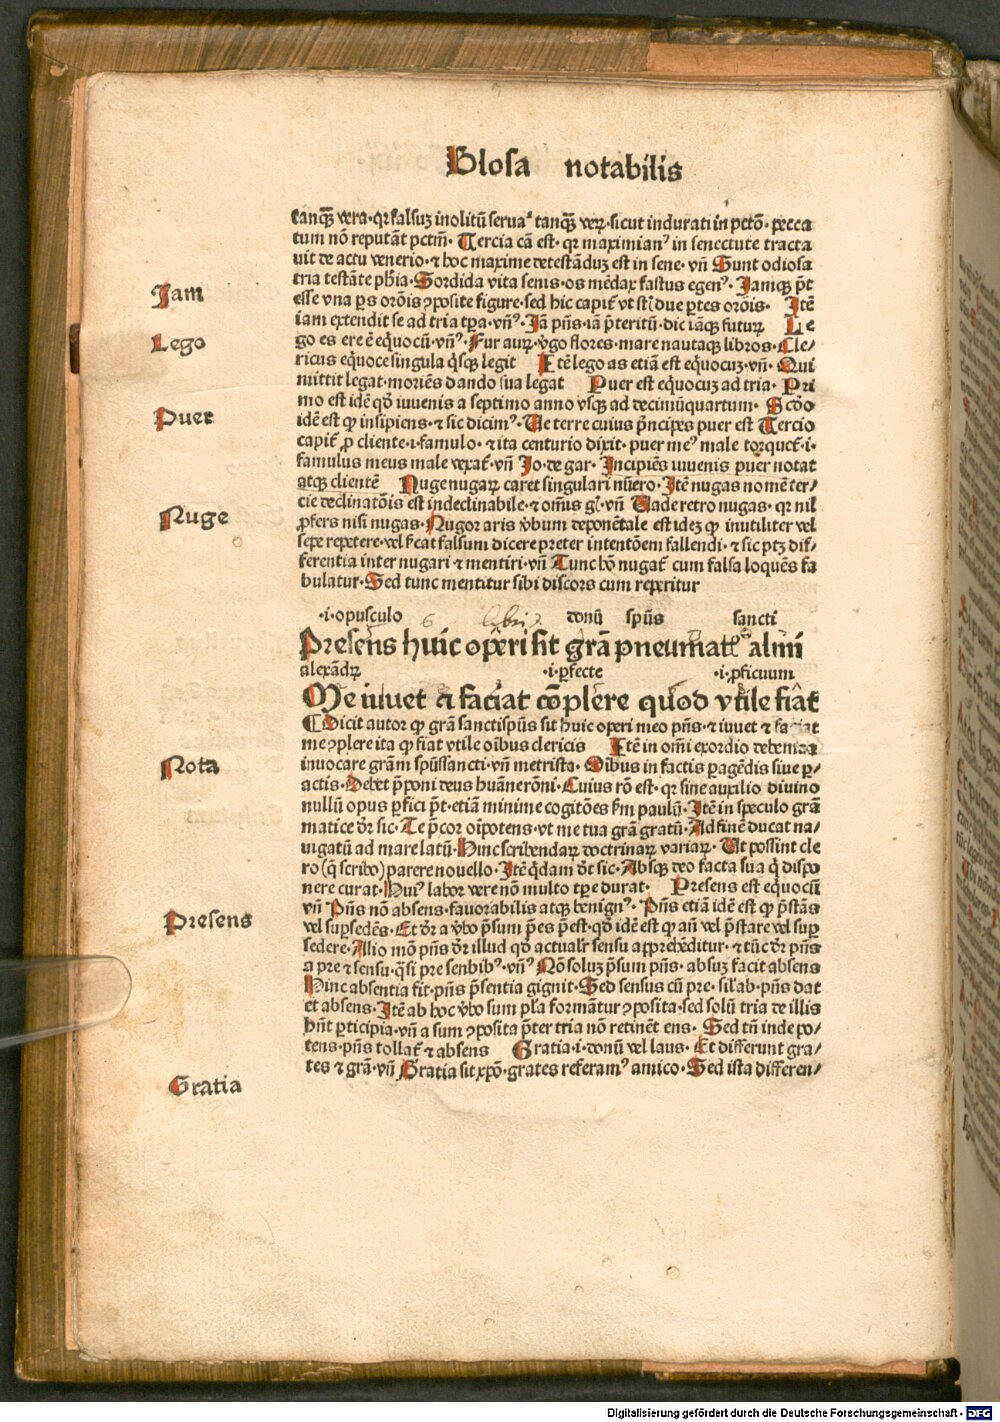 Glosa notabilis
tanqꝫ vera·qꝛ falsuꝫ inolitū seruaᵗ tanqꝫ veꝝ·sicut indurati in pctō·pecca
tum nō reputāt pctm̄· Tercia cā est·qꝛ maximianꝰ in senectute tracta
uit de actu venerio·⁊ hoc maxime detestāduꝫ est in sene·vn̄ Sunt odiosa
tria testāte ph̄ia·Sordida vita senis·os mēdax fastus egenꝰ· Iamqꝫ p̄t
Iam
esse vna ps orōis ꝯposite figure·sed hic capit᷑ vt st̄ due ꝑtes orōis· Itē
iam extendit se ad tria tp̄a·vn̄ꝰ·Iā pn̄s·iā p̄teritū·dic iāqꝫ futuꝝ Le
Lego
go es ere ē eq̇uocū·vn̄ꝰ·Fur auꝝ·v̇go flores·mare nautaqꝫ libros·Cle⸗
ricus eq̇uoce singula q̇sqꝫ legit Itē lego as etiā est eq̇uocuꝫ·vn̄· Qui
mittit legat·moriēs dando sua legat Puer est eq̇uocuꝫ ad tria· Pri
mo est idē qd̄ iuuenis a septimo anno vsqꝫ ad decimūquartum· Scdo
Puer
idē est ꝙ insipiens·⁊ sic dicimꝰ·Ue terre cuius p̄ncipes puer est Tercio
capit᷑ ꝓ cliente·i·famulo·⁊ ita centurio dixit·puer meꝰ male torquet᷑·i·
famulus meus male vexat᷑·vn̄ Io·de gar· Incipiēs iuuenis puer notat
atqꝫ clientē Nuge nugaꝝ caret singulari nūero·Itē nugas nomē ter⸗
Nuge
cie declinatōis est indeclinabile·⁊ om̄is gn̄·vn̄ Uade retro nugas·qꝛ nil
ꝓfers nisi nugas·Nugor aris v̇bum deponētale est ideꝫ ꝙ inutiliter vel
sepe repetere·vel ẜcat falsum dicere preter intentōem fallendi·⁊ sic ptꝫ dif⸗
ferentia inter nugari ⁊ mentiri·vn̄ Tunc hō nugat᷑ cum falsa loquēs fa
bulatur·Sed tunc mentitur sibi discors cum reperitur
·i·opusculo donū spūs sancti
Presens huic operi sit grā pneumatis almi
alexādꝝ ·i·ꝑfecte ·i·ꝓficuum
Me iuuet et faciat cōplere quod vtile fiat
Dicit autor ꝙ grā sanctispūs sit huic operi meo pn̄s·⁊ iuuet ⁊ faciat
me ꝯplere ita ꝙ fiat vtile oībus clericis Itē in om̄i exordio debemus
Nota
inuocare grām spūssancti·vn̄ metrista· Oībus in factis ꝑagēdis siue ꝑ⸗
actis·Debet p̄poni deus huāne rōni·Cuius rō est·qꝛ sine auxilio diuino
nullū opus ꝑfici p̄t·etiā minime cogitōes ẜm paulū·Itē in speculo grā
matice dr̄ sic·Te p̄cor oīpotens·vt me tua grā gratū·Ad finē ducat na⸗
uigatū ad mare latū·Hinc scribendaꝝ doctrinaꝝ variaꝝ·Ut possint cle
ro (q̄ scribo) parere nouello·Itē q̇dam dr̄ sic·Absqꝫ deo facta sua q̇ dispo
nere curat·Huiꝰ labor vere nō multo tp̄e durat· Presens est equocū
Presens
vn̄ Pn̄s nō absens·fauorabilis atqꝫ benignꝰ· Pn̄s etiā idē est ꝙ p̄stās
vel suꝑsedēs·Et dr̄ a v̇bo p̄sum p̄es p̄est·qd̄ idē est ꝙ an̄ vel p̄stare vel suꝑ
sedere·Alio mō pn̄s dr̄ illud qd̄ actualr̄ sensu apprehēditur·⁊ tūc dr̄ pn̄s
a pre ⁊ sensu·q̄si pre sensibꝰ·vn̄ꝰ Nō soluꝫ p̄sum pn̄s·absuꝫ facit absens
Hinc absentia fit·pn̄s p̄sentia gignit·Sed sensus cū pre·sil̄ab·pn̄s dat
et absens·Itē ab hoc v̇bo sum pl̄a formātur ꝯposita·sed solū tria de illis
hn̄t ꝑticipia·vn̄ a sum ꝯposita p̄ter tria nō retinēt ens· Sed tn̄ inde po⸗
tens·pn̄s tollat᷑ ⁊ absens Gratia·i·donū vel laus· Et differunt gra⸗
Gratia
tes ⁊ grā·vn̄ Gratia sit xp̄o·grates referamꝰ amico·Sed ista differen⸗
Digitalisierung gefördert durch die Deutsche Forschungsgemeinschaft - DFG